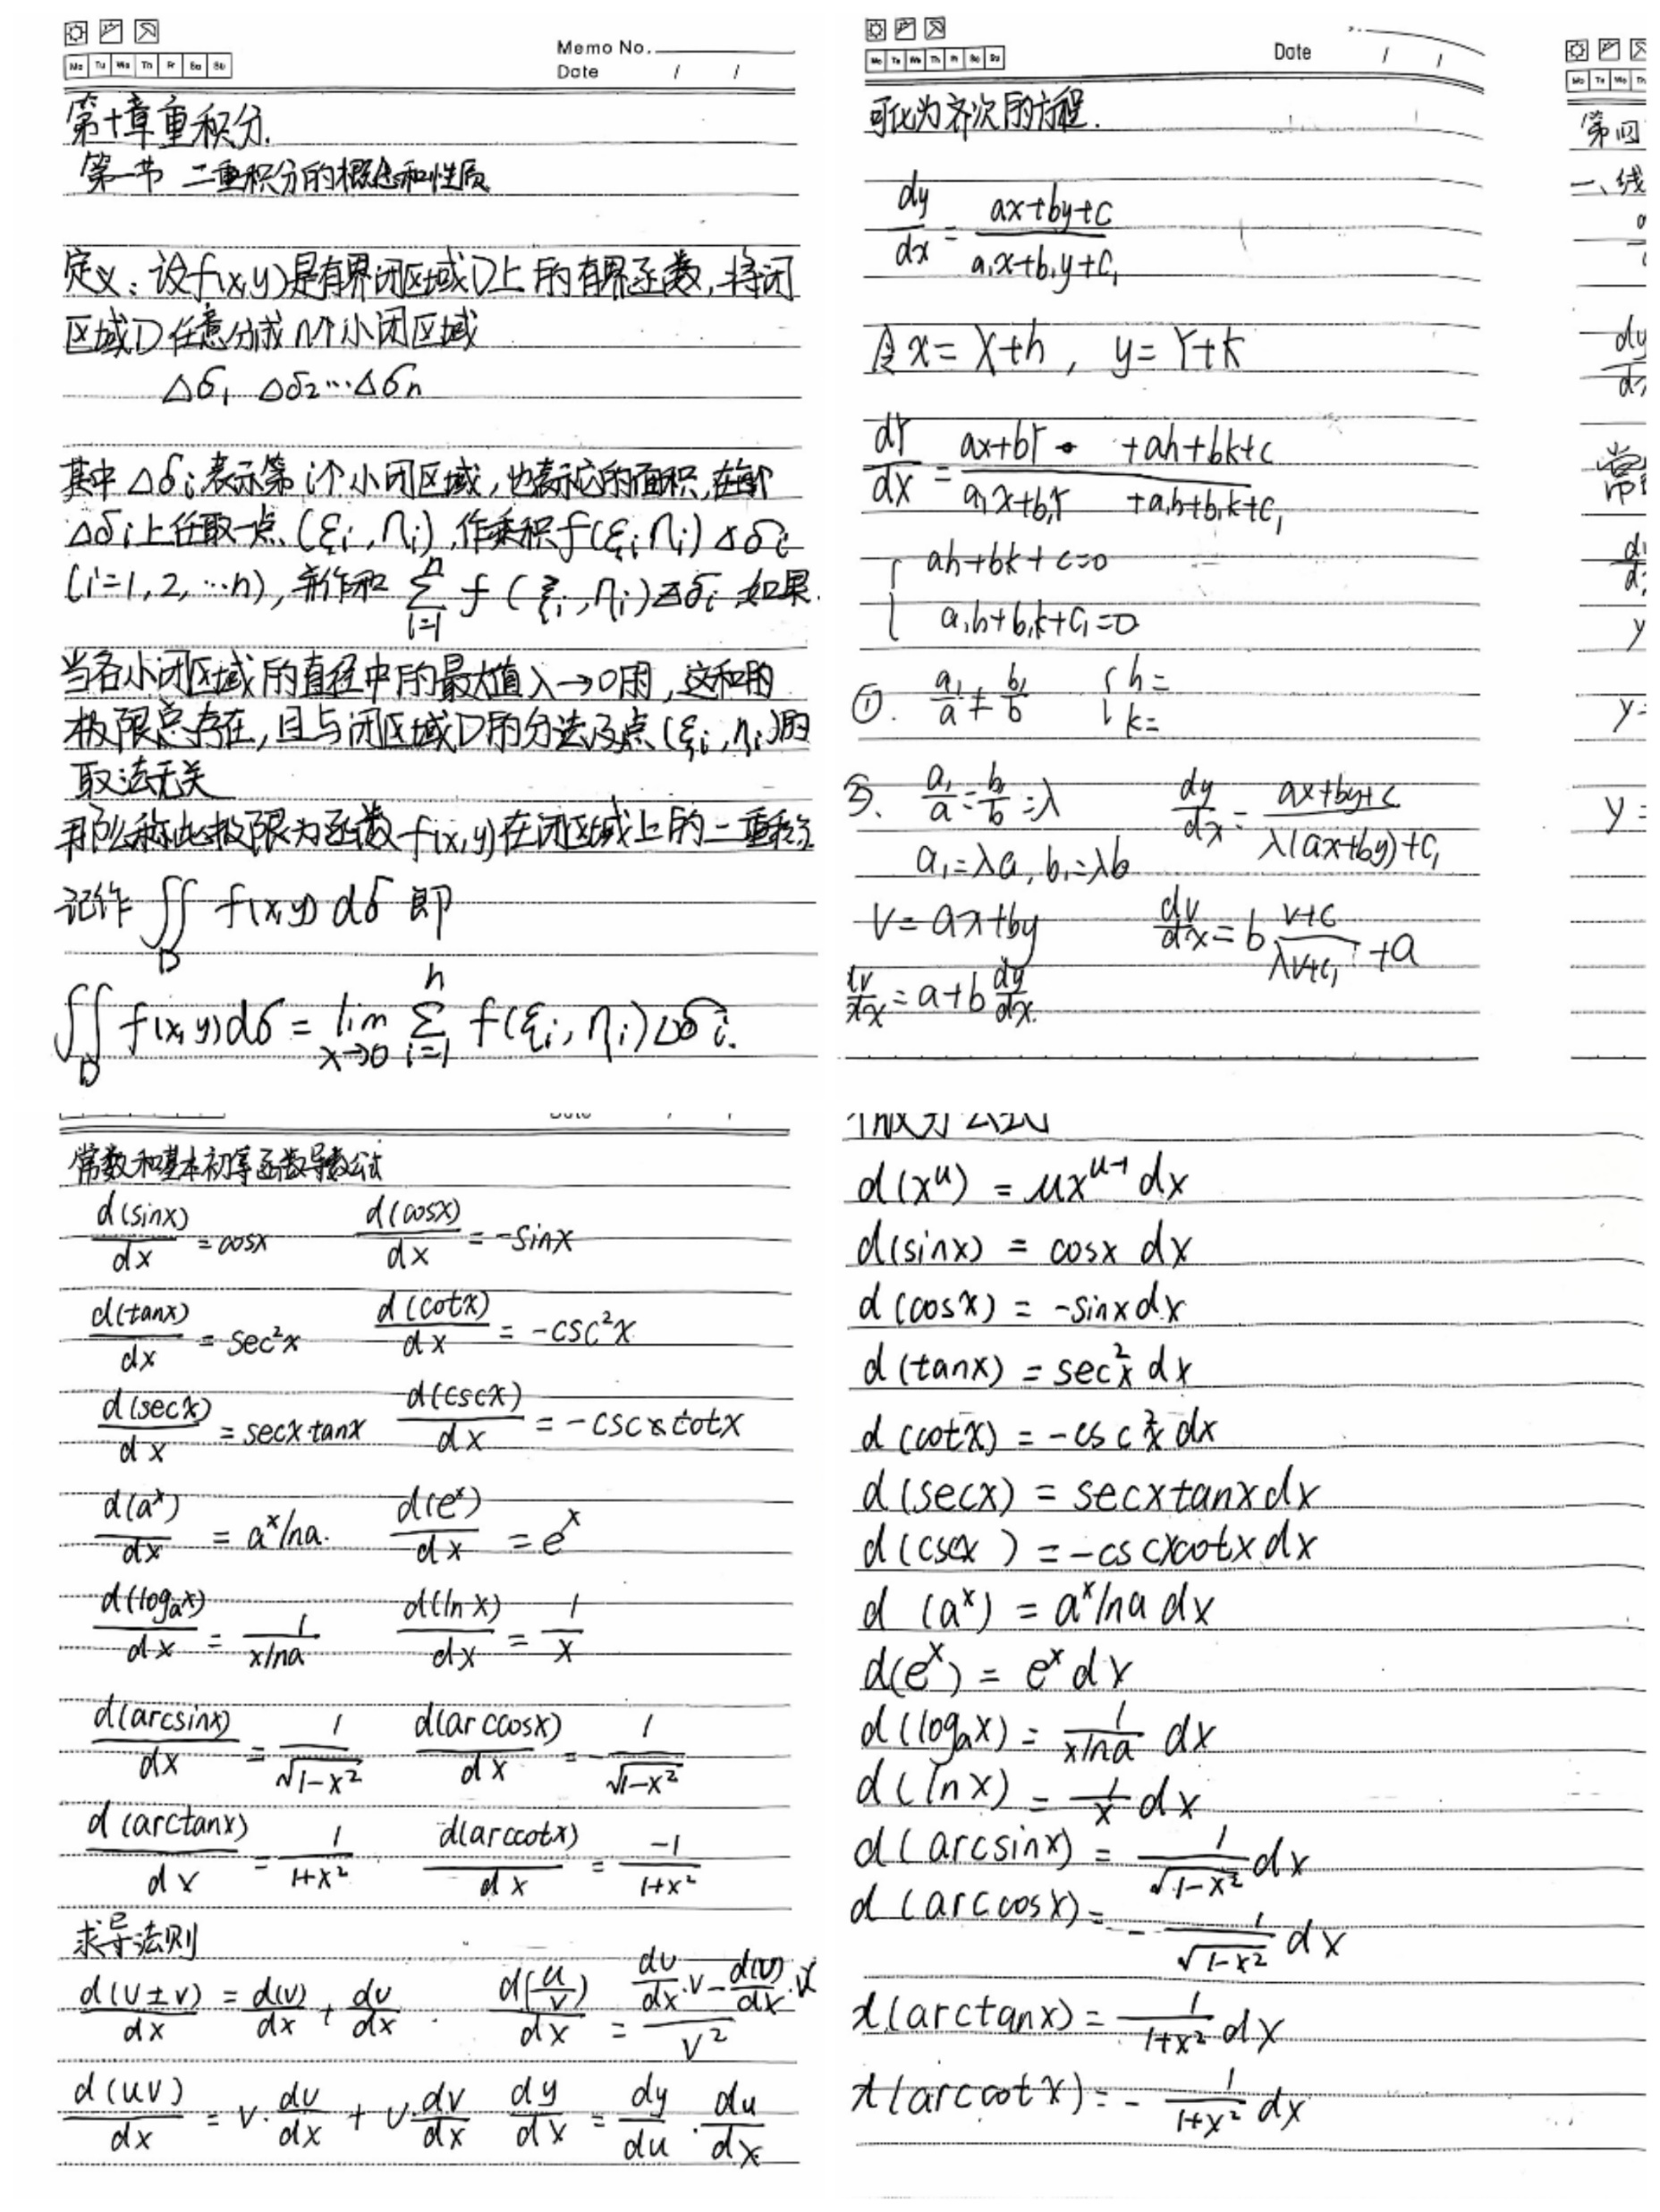 Memo No.
Mo Tu We Th Fr Sa Su
Date / /
第十章重积分.
第一节 二重积分的概念和性质
定义:设f(x,y)是有界闭区域D上的有界函数,将闭
区域D任意分成n个小闭区域
Δδ₁ Δδ₂…Δδn
其中Δδi表示第i个小闭区域,也表示它的面积,在每个
Δδi上任取一点(ξi,ηi),作乘积f(ξi,ηi)Δδi
(i=1,2,…n),并作和 ∑_{i=1}^{n} f(ξi,ηi)Δδi 如果
当各小闭区域的直径中的最大值λ→0时,这和的
极限总存在,且与闭区域D的分法及点(ξi,ηi)的
取法无关
那么称此极限为函数f(x,y)在闭区域上的二重积分
记作 ∬_D f(x,y)dδ 即
∬_D f(x,y)dδ = lim_{λ→0} ∑_{i=1}^{n} f(ξi,ηi)Δδi.
Date / /
Mo Tu We Th Fr Sa Su
可化为齐次的方程.
dy/dx = (ax+by+c)/(a₁x+b₁y+c₁)
令x=X+h, y=Y+k
dY/dX = (aX+bY +ah+bk+c)/(a₁X+b₁Y +a₁h+b₁k+c₁)
{ ah+bk+c=0
a₁h+b₁k+c₁=0
①. a₁/a≠b₁/b { h=
k=
②. a₁/a=b₁/b=λ dy/dx=(ax+by+c)/(λ(ax+by)+c₁)
a₁=λa, b₁=λb
v=ax+by dv/dx=b (v+c)/(λv+c₁)+a
dv/dx=a+b dy/dx.
Mo Tu We Th
第四
一、线
dy
常
y
y=
y=
常数和基本初等函数导数公式
d(sinx)/dx=cosx d(cosx)/dx=-sinx
d(tanx)/dx=sec²x d(cotx)/dx=-csc²x
d(secx)/dx=secxtanx d(cscx)/dx=-cscxcotx
d(aˣ)/dx=aˣlna. d(eˣ)/dx=eˣ
d(logₐx)/dx=1/(xlna) d(lnx)/dx=1/x
d(arcsinx)/dx=1/√(1-x²) d(arccosx)/dx=-1/√(1-x²)
d(arctanx)/dx=1/(1+x²) d(arccotx)/dx=-1/(1+x²)
求导法则
d(u±v)/dx=d(u)/dx+dv/dx. d(u/v)/dx=(du/dx·v-d(v)/dx·u)/v²
d(uv)/dx=v·du/dx+u·dv/dx dy/dx=dy/du·du/dx
微分公式
d(xᵘ)=μxᵘ⁻¹dx
d(sinx)=cosx dx
d(cosx)=-sinxdx
d(tanx)=sec²x dx
d(cotx)=-csc²x dx
d(secx)=secxtanxdx
d(cscx)=-cscxcotxdx
d(aˣ)=aˣlna dx
d(eˣ)=eˣdx
d(logₐx)=1/(xlna) dx
d(lnx)=1/x dx
d(arcsinx)=1/√(1-x²) dx
d(arccosx)=-1/√(1-x²) dx
d(arctanx)=1/(1+x²) dx
d(arccotx)=-1/(1+x²) dx